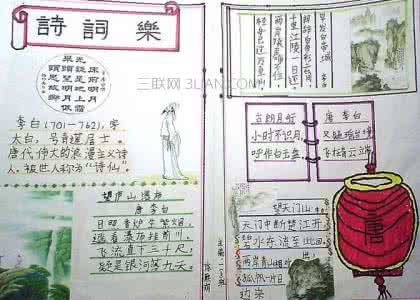 詩詞樂
床前明月
光疑是地上
李白(701-762),字
太白,号青莲居士。
唐代伟大的浪漫主义诗
人,被世人称为"诗仙"。
望庐山瀑布
唐 李白
日照香炉生紫烟,
遥看瀑布挂前川
飞流直下三千尺
疑是银河落九天。
早发白帝城
朝辞白帝彩云间
千里江陵一日还
两岸猿声啼不住
轻舟已过万重山
古朗月行
小时不识月
呼作白玉盘
唐 李白
又疑瑶台镜
飞在青云端
望天门山
天门中断楚江开
碧水东流至此回
两岸青山相对
孤帆一片日
边来
唐
三联网 3LIAN.COM